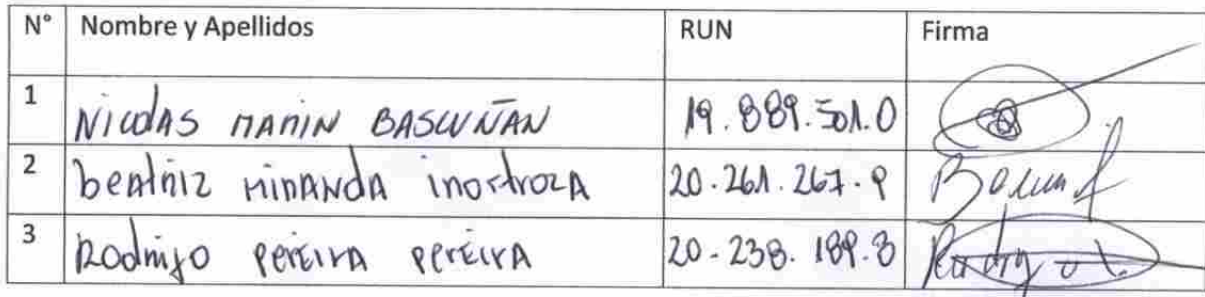 N° Nombre y Apellidos RUN Firma
1 NICOLAS MARIN BASCUÑAN 19.889.501.0
2 beatriz MIRANDA inostroza 20.261.267-9
3 Rodrigo PEREIRA PEREIRA 20-238.189.8